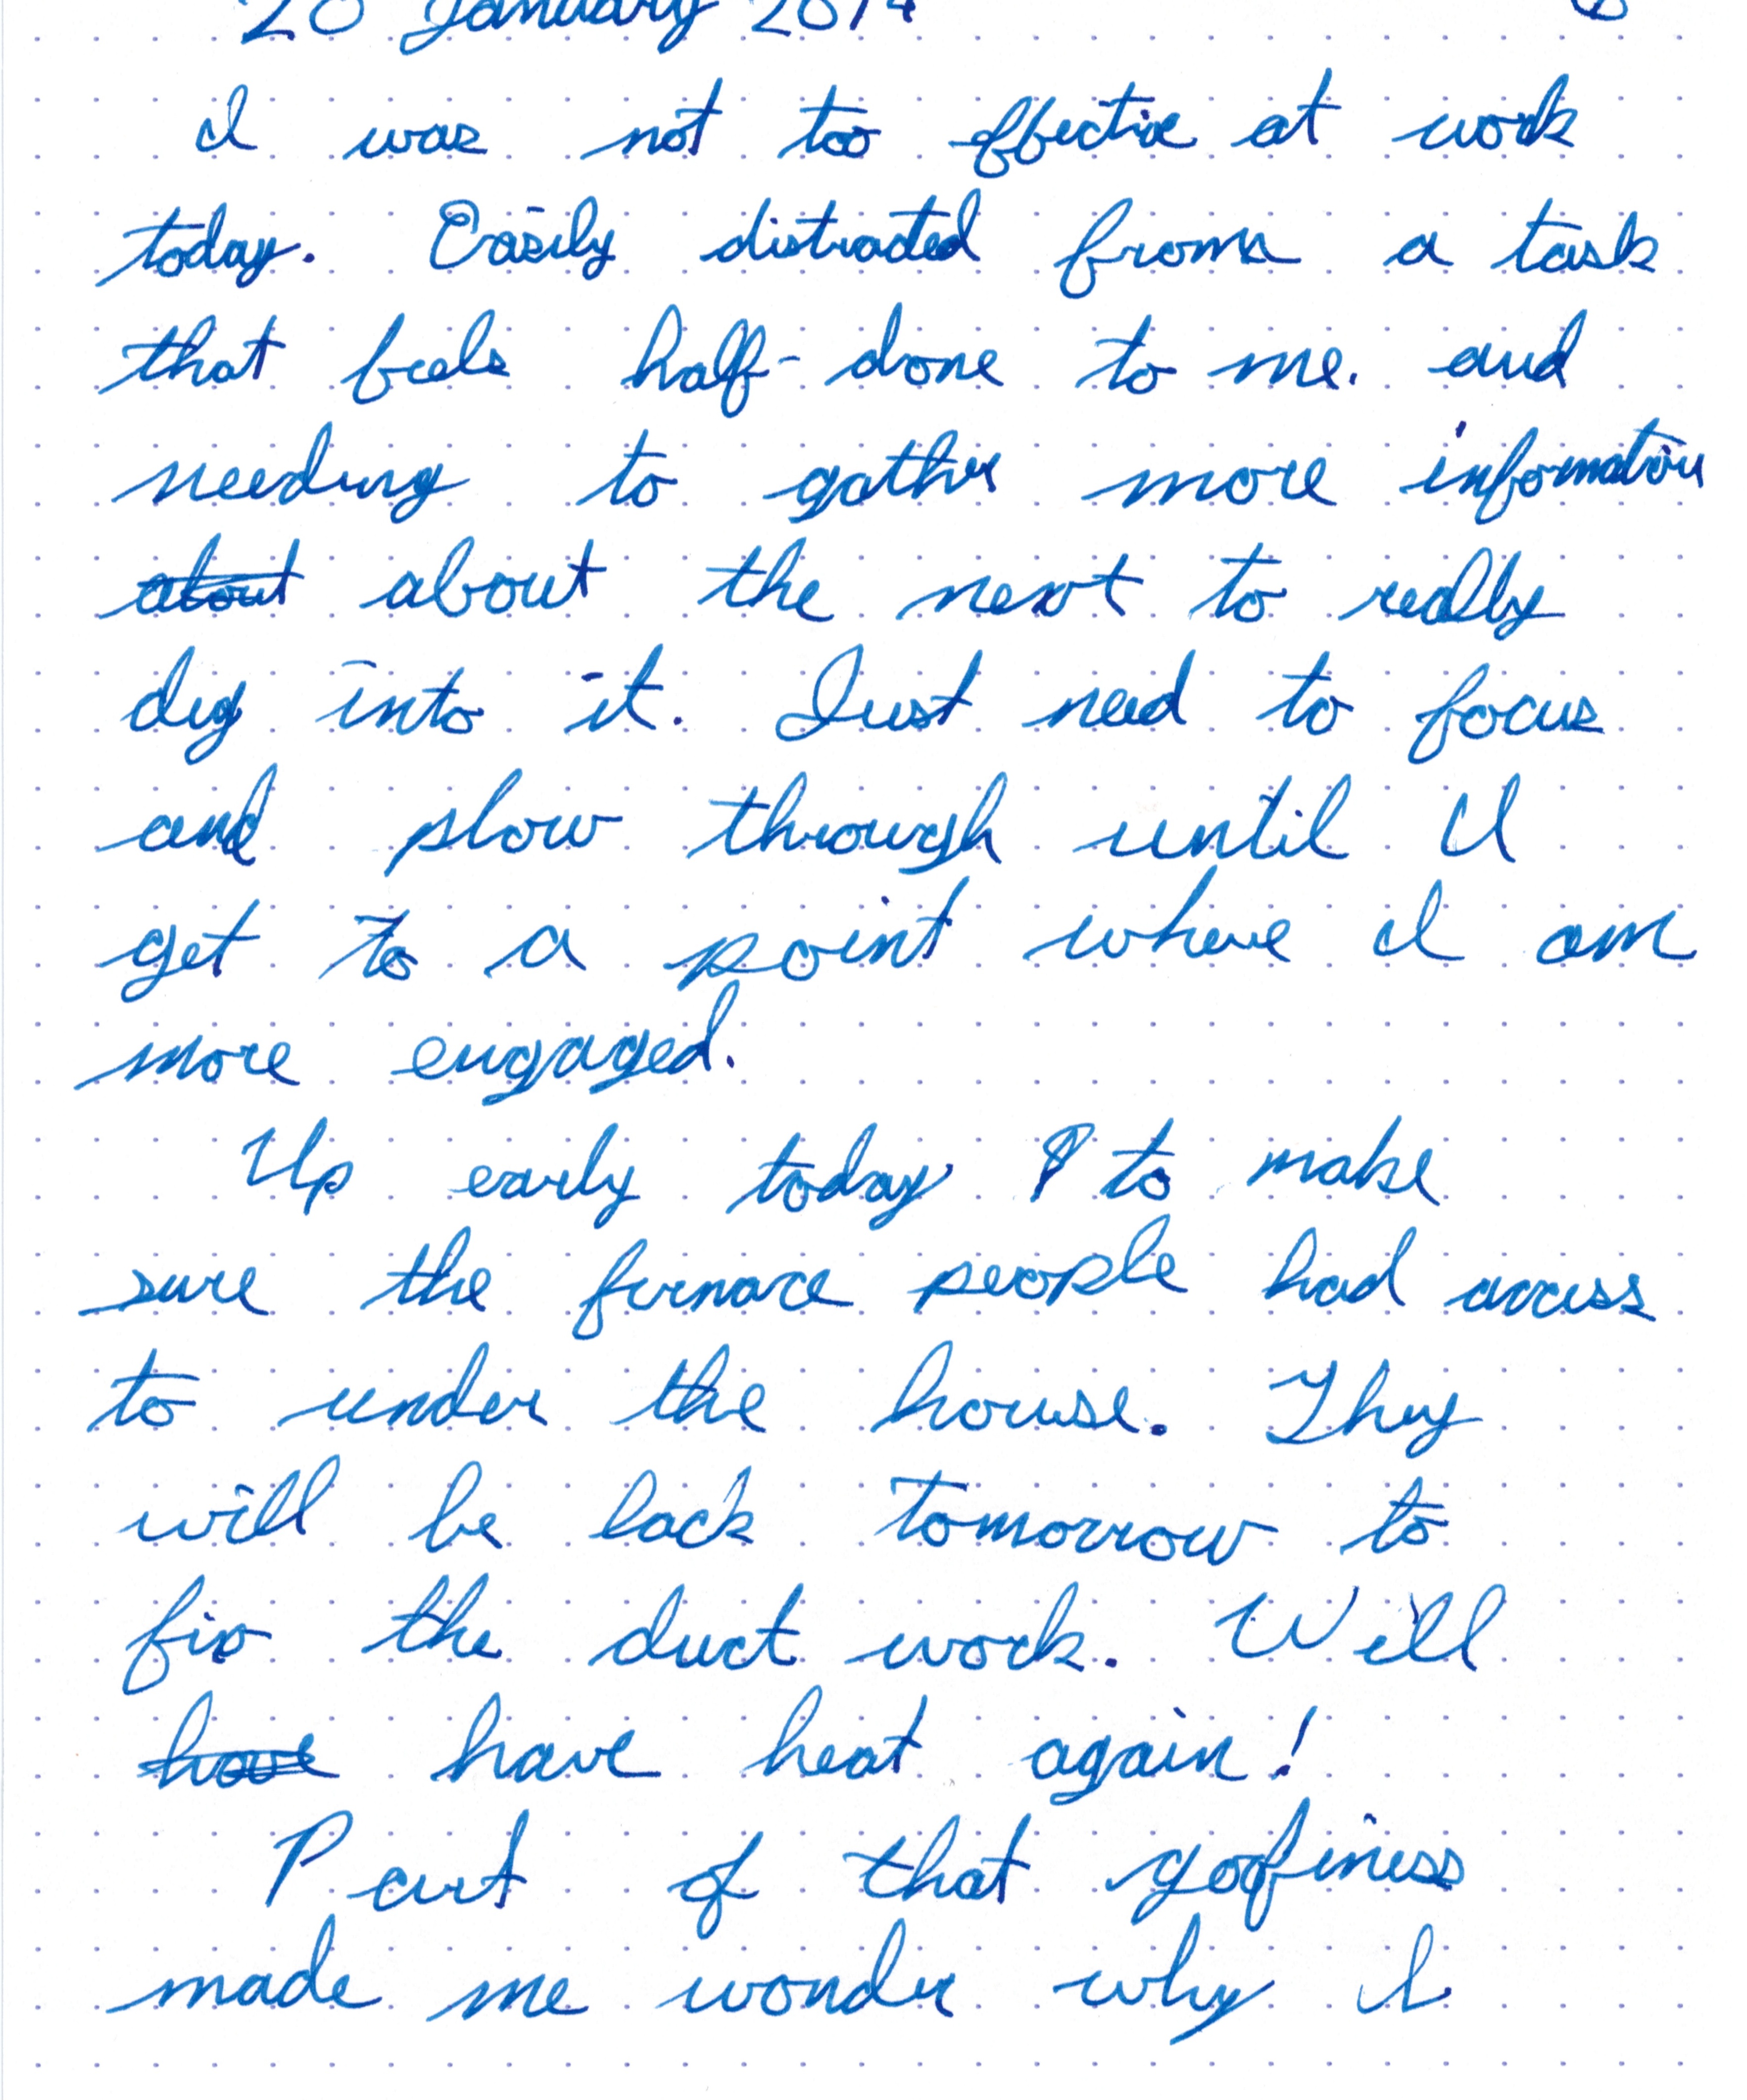 20 January 2014
I was not too effective at work
today. Easily distracted from a task
that feels half-done to me. and
needing to gather more information
about about the next to really
dig into it. Just need to focus
and plow through until I
get to a point where I am
more engaged.
Up early today to make
sure the furnace people had access
to under the house. They
will be back tomorrow to
fix the duct work. Will
have have heat again!
Part of that goofiness
made me wonder why I